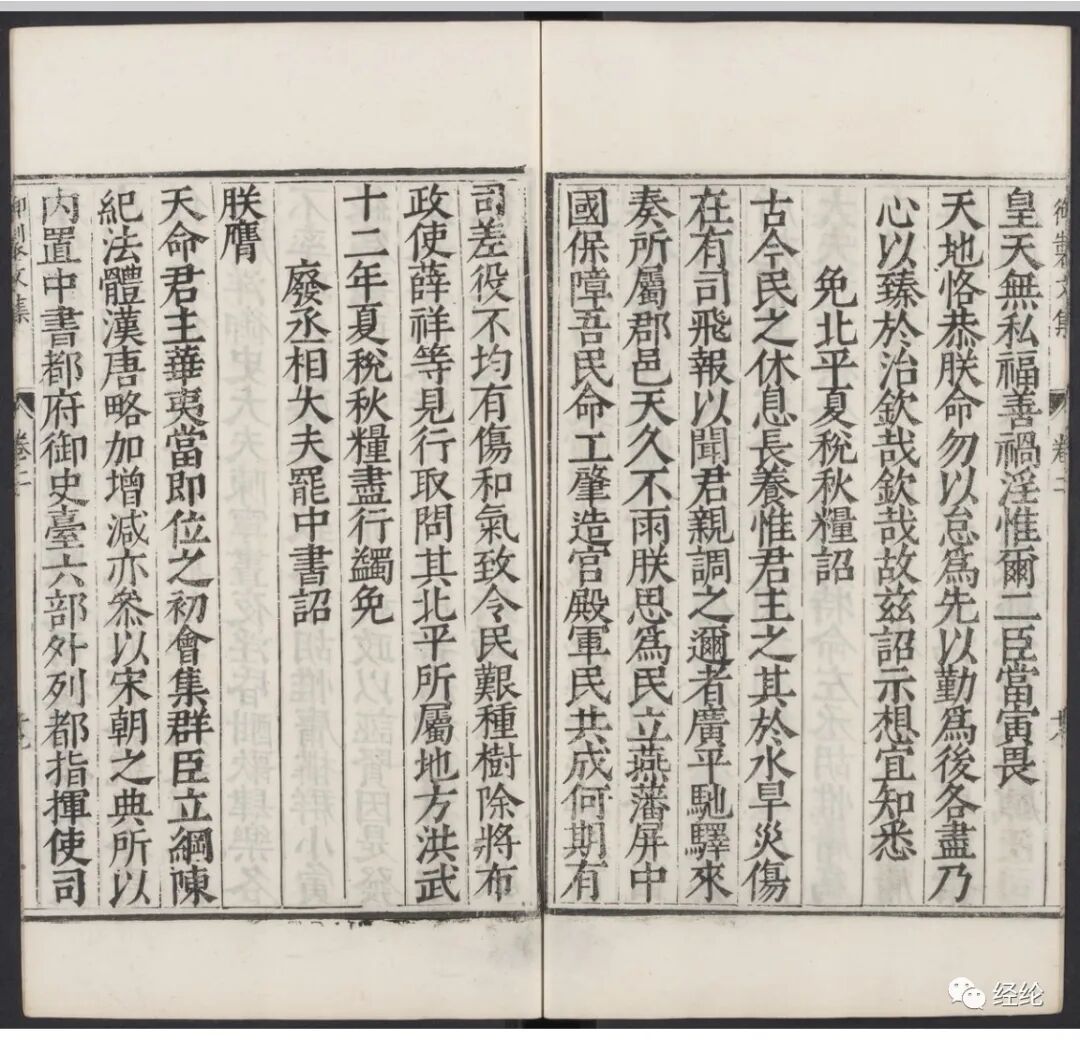 皇天無私福善禍淫惟爾二臣當寅畏
天地恪恭朕命勿以怠爲先以勤爲後各盡乃
心以臻於治欽哉欽哉故茲詔示想宜知悉
免北平夏稅秋糧詔
古今民之休息長養惟君主之其於水旱災傷
在有司飛報以聞君親調之邇者廣平馳驛來
奏所屬郡邑天久不雨朕思爲民立燕藩屏中
國保障吾民命工肇造宮殿軍民共成何期有
司差役不均有傷和氣致令民艱種樹除將布
政使薛祥等見行取問其北平所屬地方洪武
十二年夏稅秋糧盡行蠲免
廢丞相大夫罷中書詔
朕膺
天命君主華夷當即位之初會集群臣立綱陳
紀法體漢唐略加增減亦叅以宋朝之典所以
內置中書都府御史臺六部外列都指揮使司
御製文集
卷二
经纶